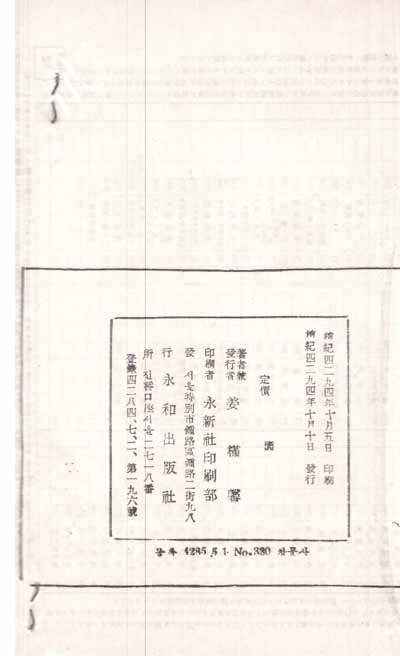 檀紀四二九四年十月五日 印刷
檀紀四二九四年十月十日 發行
定價 圜
著者兼
發行者 姜 馨
印刷者 永新社印刷部
發 서울特別市鐘路區鐘路二街九八
行 永和出版社
所 口座서울二七一八番
登錄四二八四、七、二、第一九六號
4285 5 1 No.330